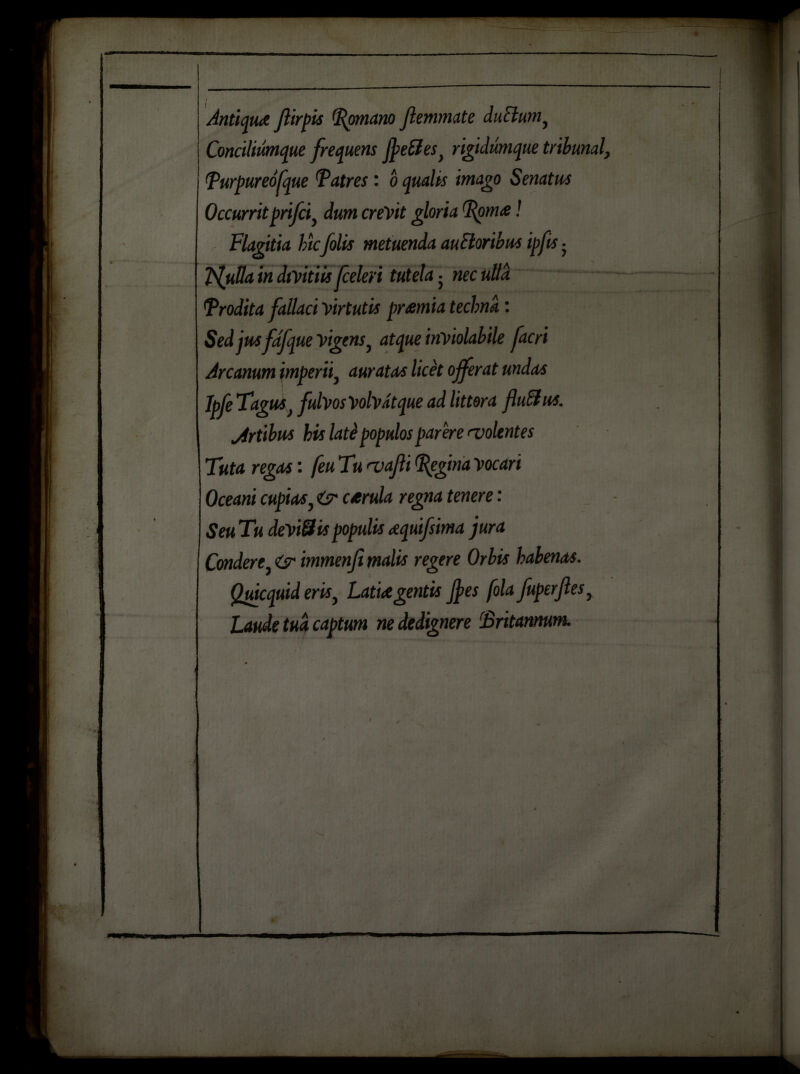 Antiquæ ſtirpis Romano ſtemmate ductum,
Conciliúmque frequens ſpectes, rigidúmque tribunal,
Purpureóſque Patres : ô qualis imago Senatus
Occurrit priſci, dum crevit gloria Romæ !
Flagitia hîc ſolis metuenda auctoribus ipſis ;
Nulla in divitiis ſceleri tutela ; nec ullâ
Prodita fallaci virtutis præmia technâ :
Sed jus fáſque vigens, atque inviolabile ſacri
Arcanum imperii, auratas licèt offerat undas
Ipſe Tagus, fulvos volvátque ad littora fluctus.
Artibus his latè populos parêre volentes
Tuta regas : ſeu Tu vaſti Regina vocari
Oceani cupias, & cærula regna tenere :
Seu Tu devictis populis æquiſsima jura
Condere, & immenſi malis regere Orbis habenas.
Quicquid eris, Latiæ gentis ſpes ſola ſuperſtes,
Laude tuâ captum ne dedignere Britannum.